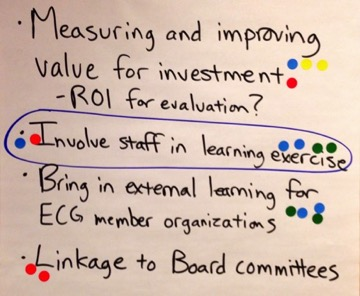 · Measuring and improving
value for investment
- ROI for evaluation?
· Involve staff in learning exercise
· Bring in external learning for
ECG member organizations
· Linkage to Board committees